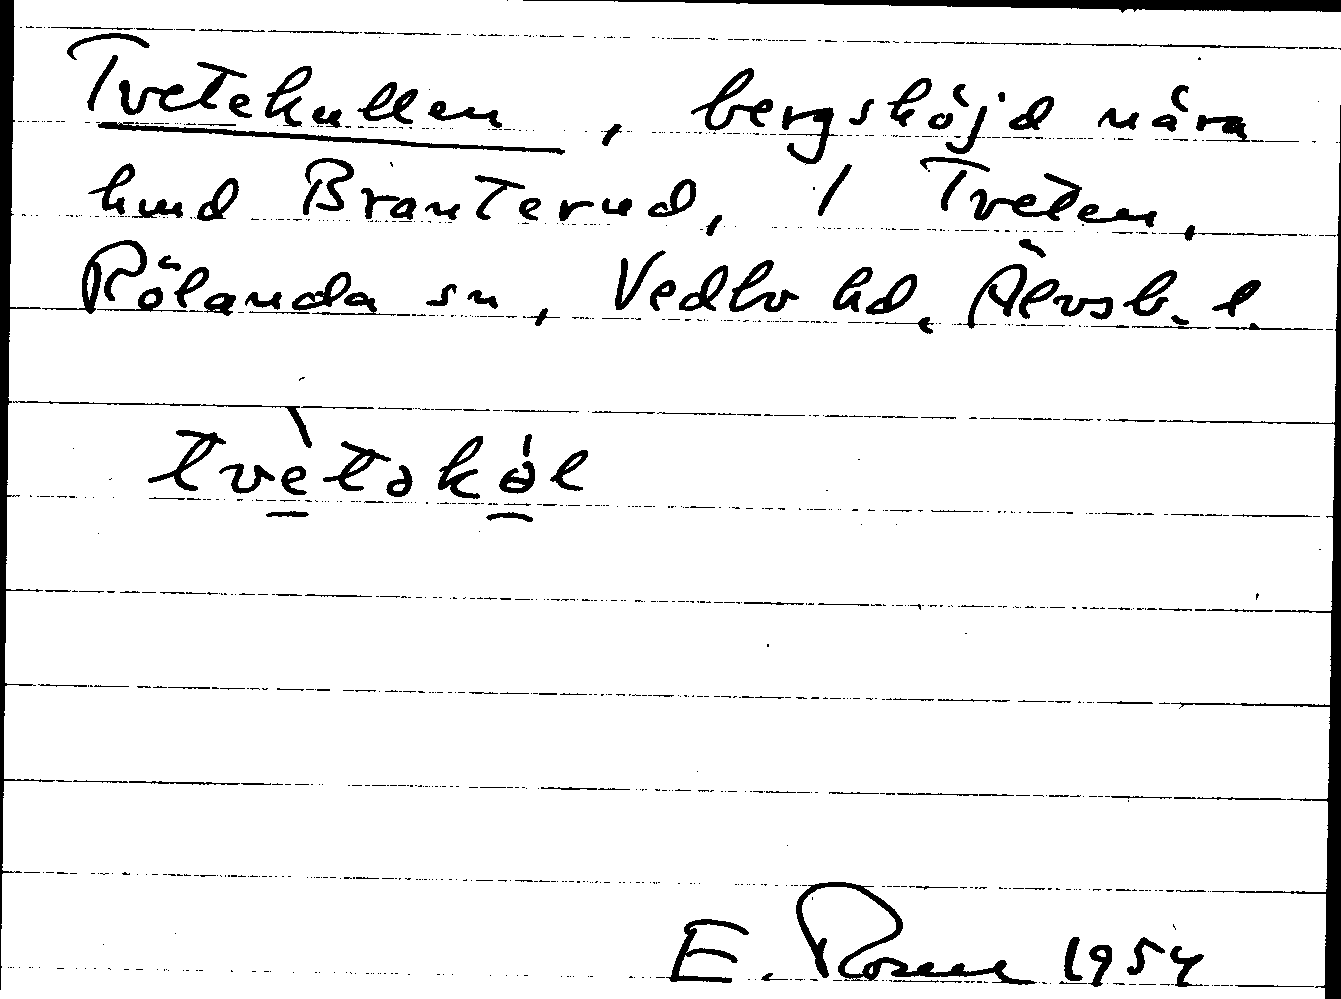 Tvetekullen, bergshöjd nära
hmd Branterud, 1 Tveten,
Rölanda sn, Vedbo hd, Älvsb. l.
tvètəkə̀l
E. Rosell 1954